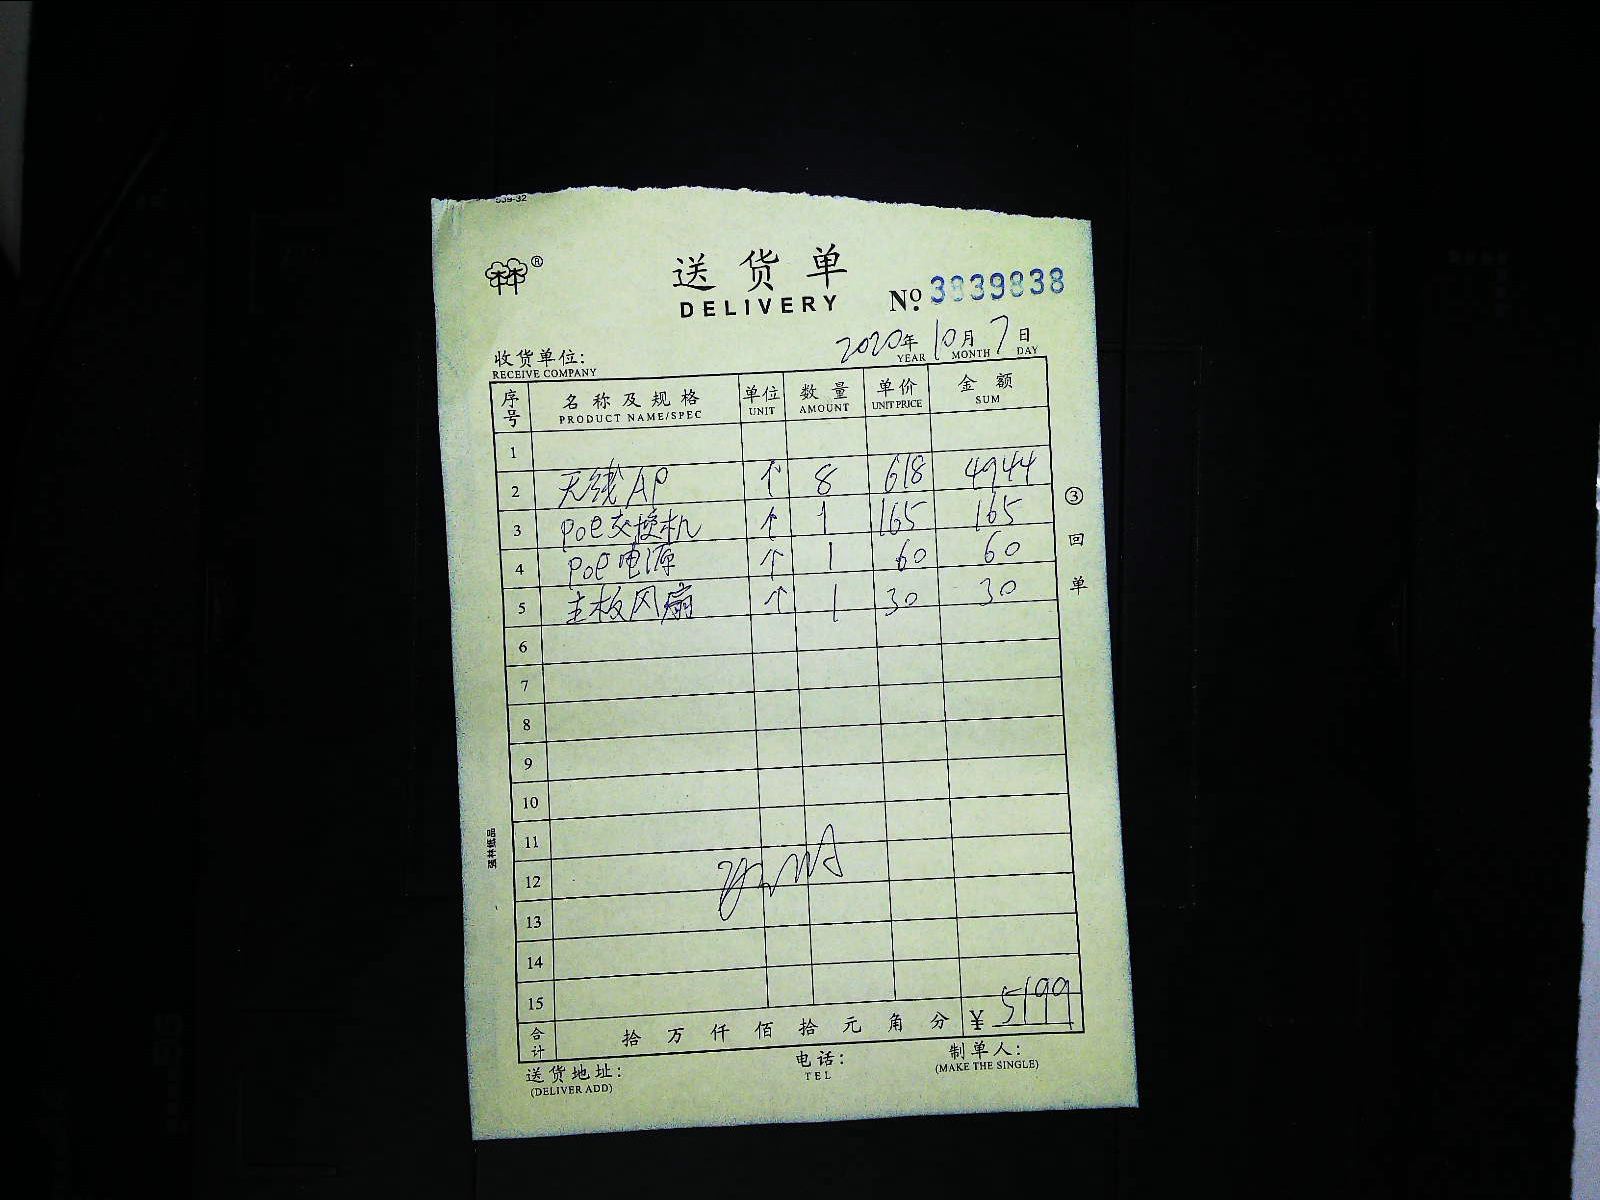 539-32
®
送货单
DELIVERY
No. 3839838
2020年10月7日
YEAR MONTH DAY
收货单位:
RECEIVE COMPANY
序号 名称及规格 单位 数量 单价 金额
PRODUCT NAME/SPEC UNIT AMOUNT UNIT PRICE SUM
1
2 无线AP 个 8 618 4944
3 poe交换机 个 1 165 165
4 poe电源 个 1 60 60
5 主板风扇 个 1 30 30
6
7
8
9
10
11
12
13
14
15
合计 拾万仟佰拾元角分 ¥ 5199
③回单
强林纸品
送货地址: 电话: 制单人:
(DELIVER ADD) TEL (MAKE THE SINGLE)